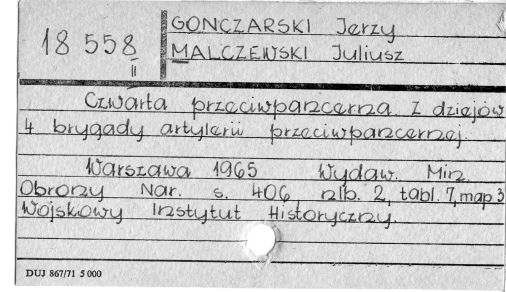 GONCZARSKI Jerzy
18 558 MALCZEWSKI Juliusz
II
Czwarta przeciwpancerna. Z dziejów
4 brygady artylerii przeciwpancernej.
Warszawa 1965 Wydaw. Min.
Obrony Nar. s. 406 nlb. 2, tabl. 7, map 3
Wojskowy Instytut Historyczny.
DUJ 867/71 5 000